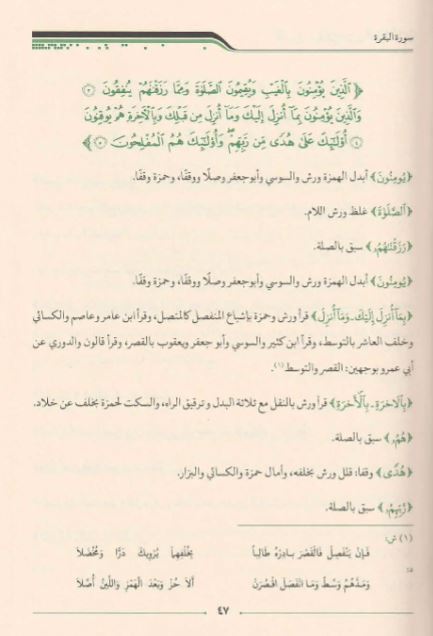 سورة البقرة
﴿ ٱلَّذِينَ يُؤْمِنُونَ بِٱلْغَيْبِ وَيُقِيمُونَ ٱلصَّلَوٰةَ وَمِمَّا رَزَقْنَٰهُمْ يُنفِقُونَ ٣
وَٱلَّذِينَ يُؤْمِنُونَ بِمَآ أُنزِلَ إِلَيْكَ وَمَآ أُنزِلَ مِن قَبْلِكَ وَبِٱلْءَاخِرَةِ هُمْ يُوقِنُونَ
٤ أُوْلَٰٓئِكَ عَلَىٰ هُدًى مِّن رَّبِّهِمْ ۖ وَأُوْلَٰٓئِكَ هُمُ ٱلْمُفْلِحُونَ ٥ ﴾
﴿يُومِنُونَ﴾ أبدل الهمزة ورش والسوسي وأبو جعفر وصلًا ووقفًا، وحمزة وقفًا.
﴿ٱلصَّلَوٰةَ﴾ غلظ ورش اللام.
﴿رَزَقْنَٰهُمُۥ﴾ سبق بالصلة.
﴿يُومِنُونَ﴾ أبدل الهمزة ورش والسوسي وأبو جعفر وصلًا ووقفًا، وحمزة وقفًا.
﴿بِمَآ أُنزِلَ إِلَيْكَ - وَمَآ أُنزِلَ﴾ قرأ ورش وحمزة بإشباع المنفصل كالمتصل، وقرأ ابن عامر وعاصم والكسائي
وخلف العاشر بالتوسط، وقرأ ابن كثير والسوسي وأبو جعفر ويعقوب بالقصر، وقرأ قالون والدوري عن
أبي عمرو بوجهين: القصر والتوسط(١).
﴿بِٱلَاخِرَةِ - بِٱلْأَخِرَةِ﴾ قرأ ورش بالنقل مع ثلاثة البدل و ترقيق الراء، والسكت لحمزة بخلف عن خلاد.
﴿هُمُۥ﴾ سبق بالصلة.
﴿هُدًى﴾ وقفا: قلل ورش بخلفه، وأمال حمزة والكسائي والبزار.
﴿رَّبِّهِمُۥ﴾ سبق بالصلة.
(١) ش:
فَإِن يَنْفَصِلْ فَالْقَصْرَ بَادِرْهُ طَالِبًا بِخُلْفِهِمَا يُرْوِيكَ دَرًّا وَمُخْضَلَا
وَمَدَّهُمُ وَسِّطْ وَمَا انْفَصَلَ اقْصُرَنْ أَلَا حُزْ وَبَعْدَ الْهَمْزِ وَاللِّينُ أُصِّلَا
٤٧